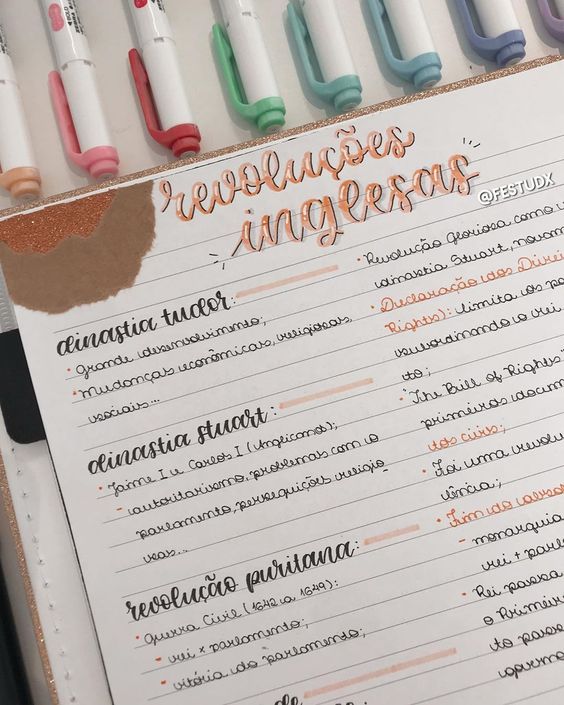 revoluções
inglesas
@FESTUDX
dinastia tudor:
• grande desenvolvimento;
• mudanças econômicas, religiosas,
sociais...
dinastia stuart:
• Jaime I e Carlos I (Anglicanos);
- autoritarismo, problemas com o
parlamento, perseguições religio
sas...
revolução puritana:
• guerra civil (1642 a 1649):
- rei x parlamento;
- vitória do parlamento;
de
• Revolução Gloriosa como
dinastia Stuart,
• Declaração dos
Rights): limita os
subordinando o rei
to;
• The Bill of Rights
primeiros
dos civis;
• Foi uma
lência;
• Fim do
- monarquia
rei +
• Rei passa
o Primeiro
to passa